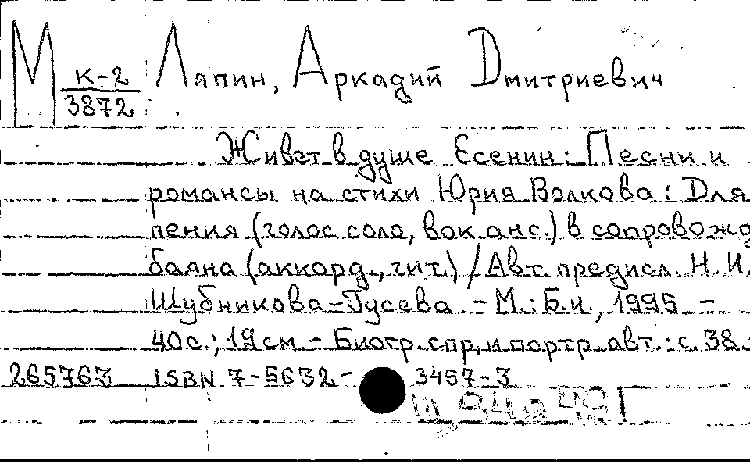 М К-2 Лапин, Аркадий Дмитриевич
3872
Живет в душе Есенин: Песни и
романсы на стихи Юрия Волкова: Для
пения (голос соло, вок. анс.) в сопровожд
баяна (аккорд., гит.) / Авт. предисл. Н. И.
Шубникова-Гусева. - М.: Б.и., 1995. -
40с.; 19см - Биогр. спр. и портр. авт.: с. 38.
265763 ISBN 7-5632- 3457-3